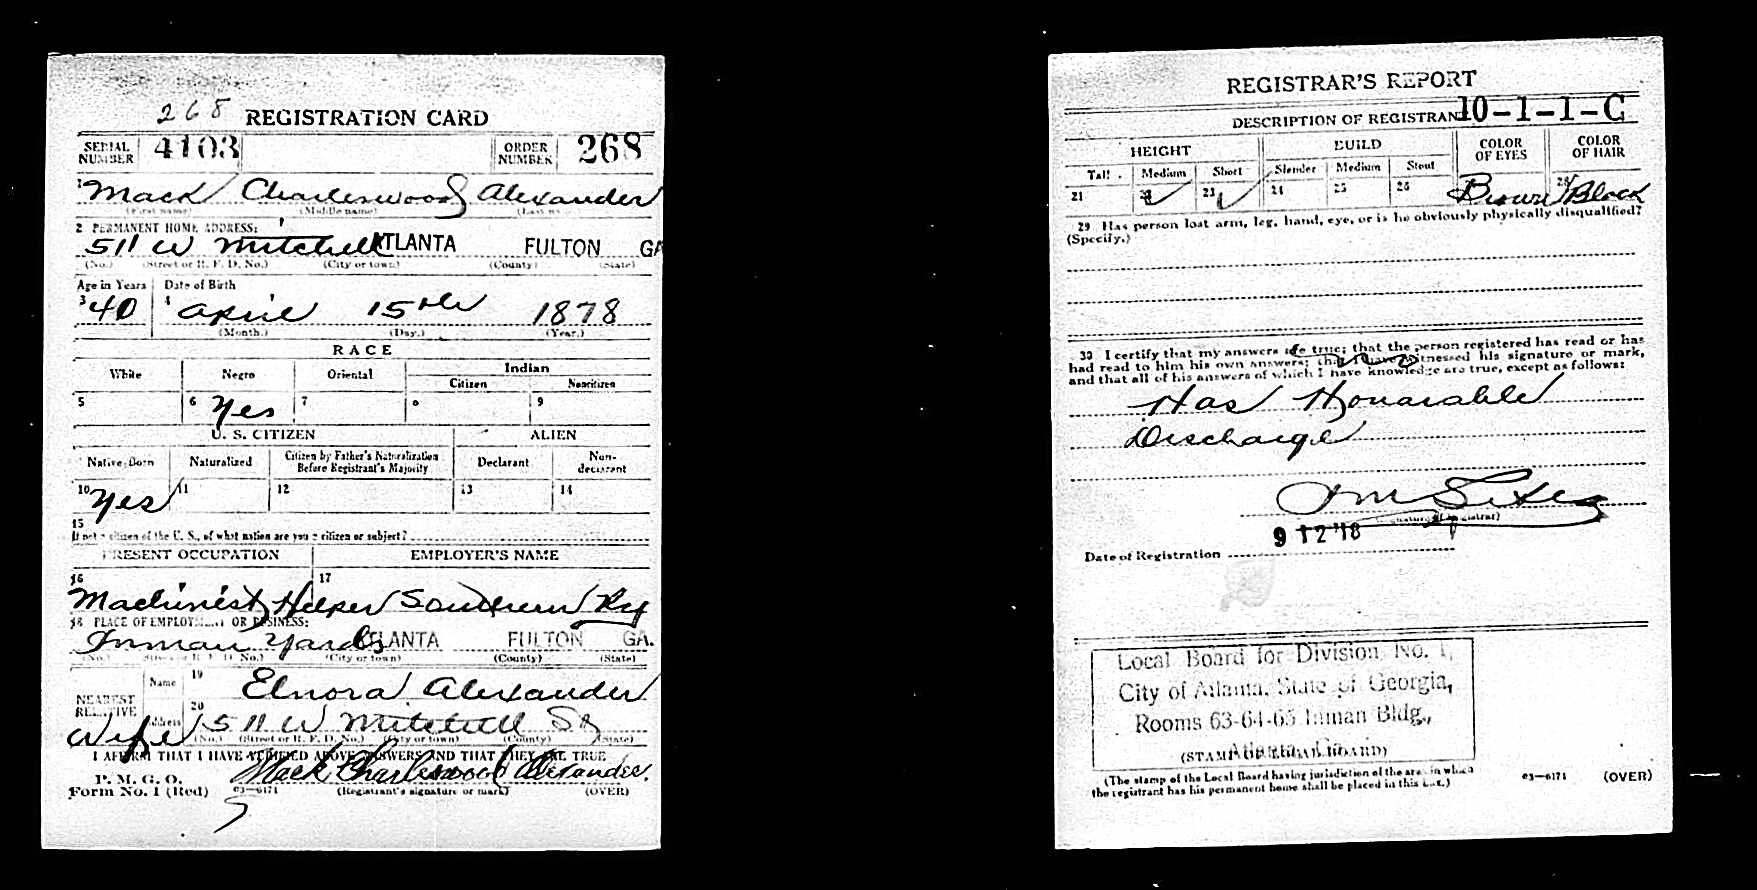 268 REGISTRATION CARD
SERIAL NUMBER 4103 ORDER NUMBER 268
1 Mack Charleswood Alexander
(First name) (Middle name) (Last name)
2 PERMANENT HOME ADDRESS:
511 W Mitchell ATLANTA FULTON GA
(No.) (Street or R. F. D. No.) (City or town) (County) (State)
Age in Years Date of Birth
3 40 4 April 15th 1878
(Month.) (Day.) (Year.)
RACE
White Negro Oriental Indian
Citizen Noncitizen
5 6 Yes 7 8 9
U. S. CITIZEN ALIEN
Native Born Naturalized Citizen by Father's Naturalization Before Registrant's Majority Declarant Non-declarant
10 Yes 11 12 13 14
15
If not a citizen of the U. S., of what nation are you a citizen or subject?
PRESENT OCCUPATION EMPLOYER'S NAME
16 17
Machinist Helper Southern Ry
18 PLACE OF EMPLOYMENT OR BUSINESS:
Inman Yards ATLANTA FULTON GA.
(No.) (Street or R. F. D. No.) (City or town) (County) (State)
NEAREST RELATIVE Name 19 Elnora Alexander
Wife Address 20 511 W Mitchell St
(No.) (Street or R. F. D. No.) (City or town) (County) (State)
I AFFIRM THAT I HAVE VERIFIED ABOVE ANSWERS AND THAT THEY ARE TRUE
P. M. G. O.
Form No. 1 (Red) 03—6171 Mack Charleswood Alexander.
(Registrant's signature or mark) (OVER)
REGISTRAR'S REPORT
10-1-1-C
DESCRIPTION OF REGISTRANT
HEIGHT BUILD COLOR OF EYES COLOR OF HAIR
Tall Medium Short Slender Medium Stout
21 22 ✓ 23 ✓ 24 25 26 27 Brown 28 Black
29 Has person lost arm, leg, hand, eye, or is he obviously physically disqualified?
(Specify.)
30 I certify that my answers are true; that the person registered has read or has
had read to him his own answers; that I have witnessed his signature or mark,
and that all of his answers of which I have knowledge are true, except as follows:
Has Honarable
Discharge
(Signature of Registrar)
Date of Registration 9 12 '18
Local Board for Division No. 1,
City of Atlanta, State of Georgia,
Rooms 63-64-65 Inman Bldg.,
Atlanta, Ga.
(STAMP OF LOCAL BOARD)
(The stamp of the Local Board having jurisdiction of the area in which
the registrant has his permanent home shall be placed in this box.)
03—6171 (OVER)